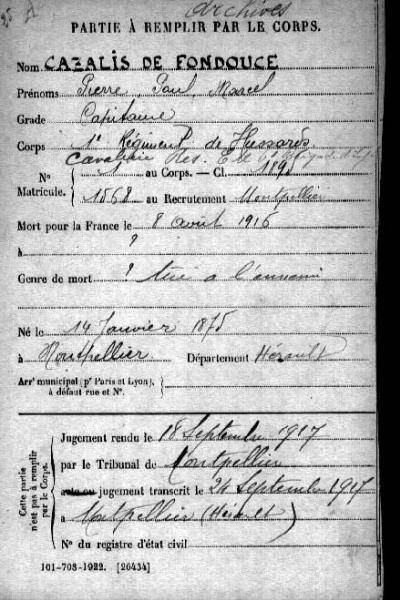 Archives
PARTIE À REMPLIR PAR LE CORPS.
Nom CAZALIS DE FONDOUCE
Prénoms Pierre, Paul, Marcel
Grade Capitaine
Corps 1e Régiment de Hussards
Cavalerie Rés.
N° au Corps. — Cl. 1895
Matricule. 1568 au Recrutement Montpellier
Mort pour la France le 8 août 1916
à ?
Genre de mort ? tué a l'ennemi
Né le 14 Janvier 1875
à Montpellier Département Hérault
Arrt municipal (pr Paris et Lyon), à défaut rue et N°.
Cette partie n'est pas à remplir par le Corps.
Jugement rendu le 18 Septembre 1917
par le Tribunal de Montpellier
acte ou jugement transcrit le 24 Septembre 1917
à Montpellier (Hérault)
N° du registre d'état civil
101-708-1922. [26434]